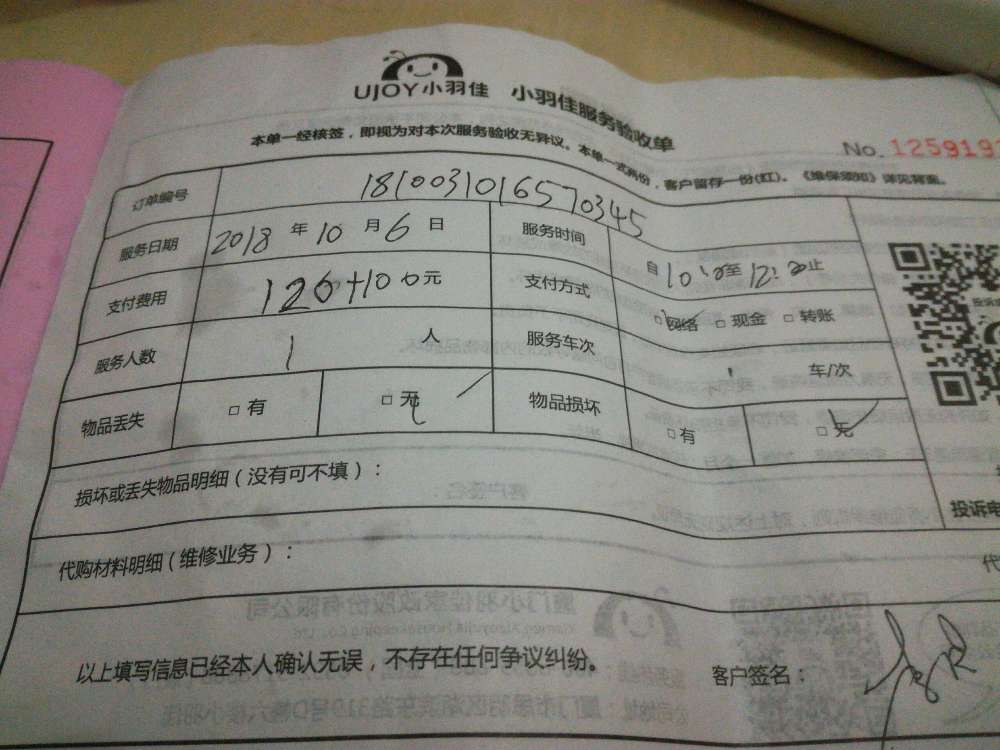 UJOY小羽佳 小羽佳服务验收单
本单一经核签，即视为对本次服务验收无异议。本单一式两份，客户留存一份(红)。《维保须知》详见背面。
No. 1259193
订单编号 181003101657034 5
服务日期 2018 年 10 月 6 日 服务时间 自 10:00 至 12:00 止
支付费用 126+100元 支付方式 □网络 □现金 □转账
服务人数 1 人 服务车次 车/次
物品丢失 □有 □无 物品损坏 □有 □无
损坏或丢失物品明细（没有可不填）：
投诉电
代购材料明细（维修业务）：
代
以上填写信息已经本人确认无误，不存在任何争议纠纷。 客户签名：